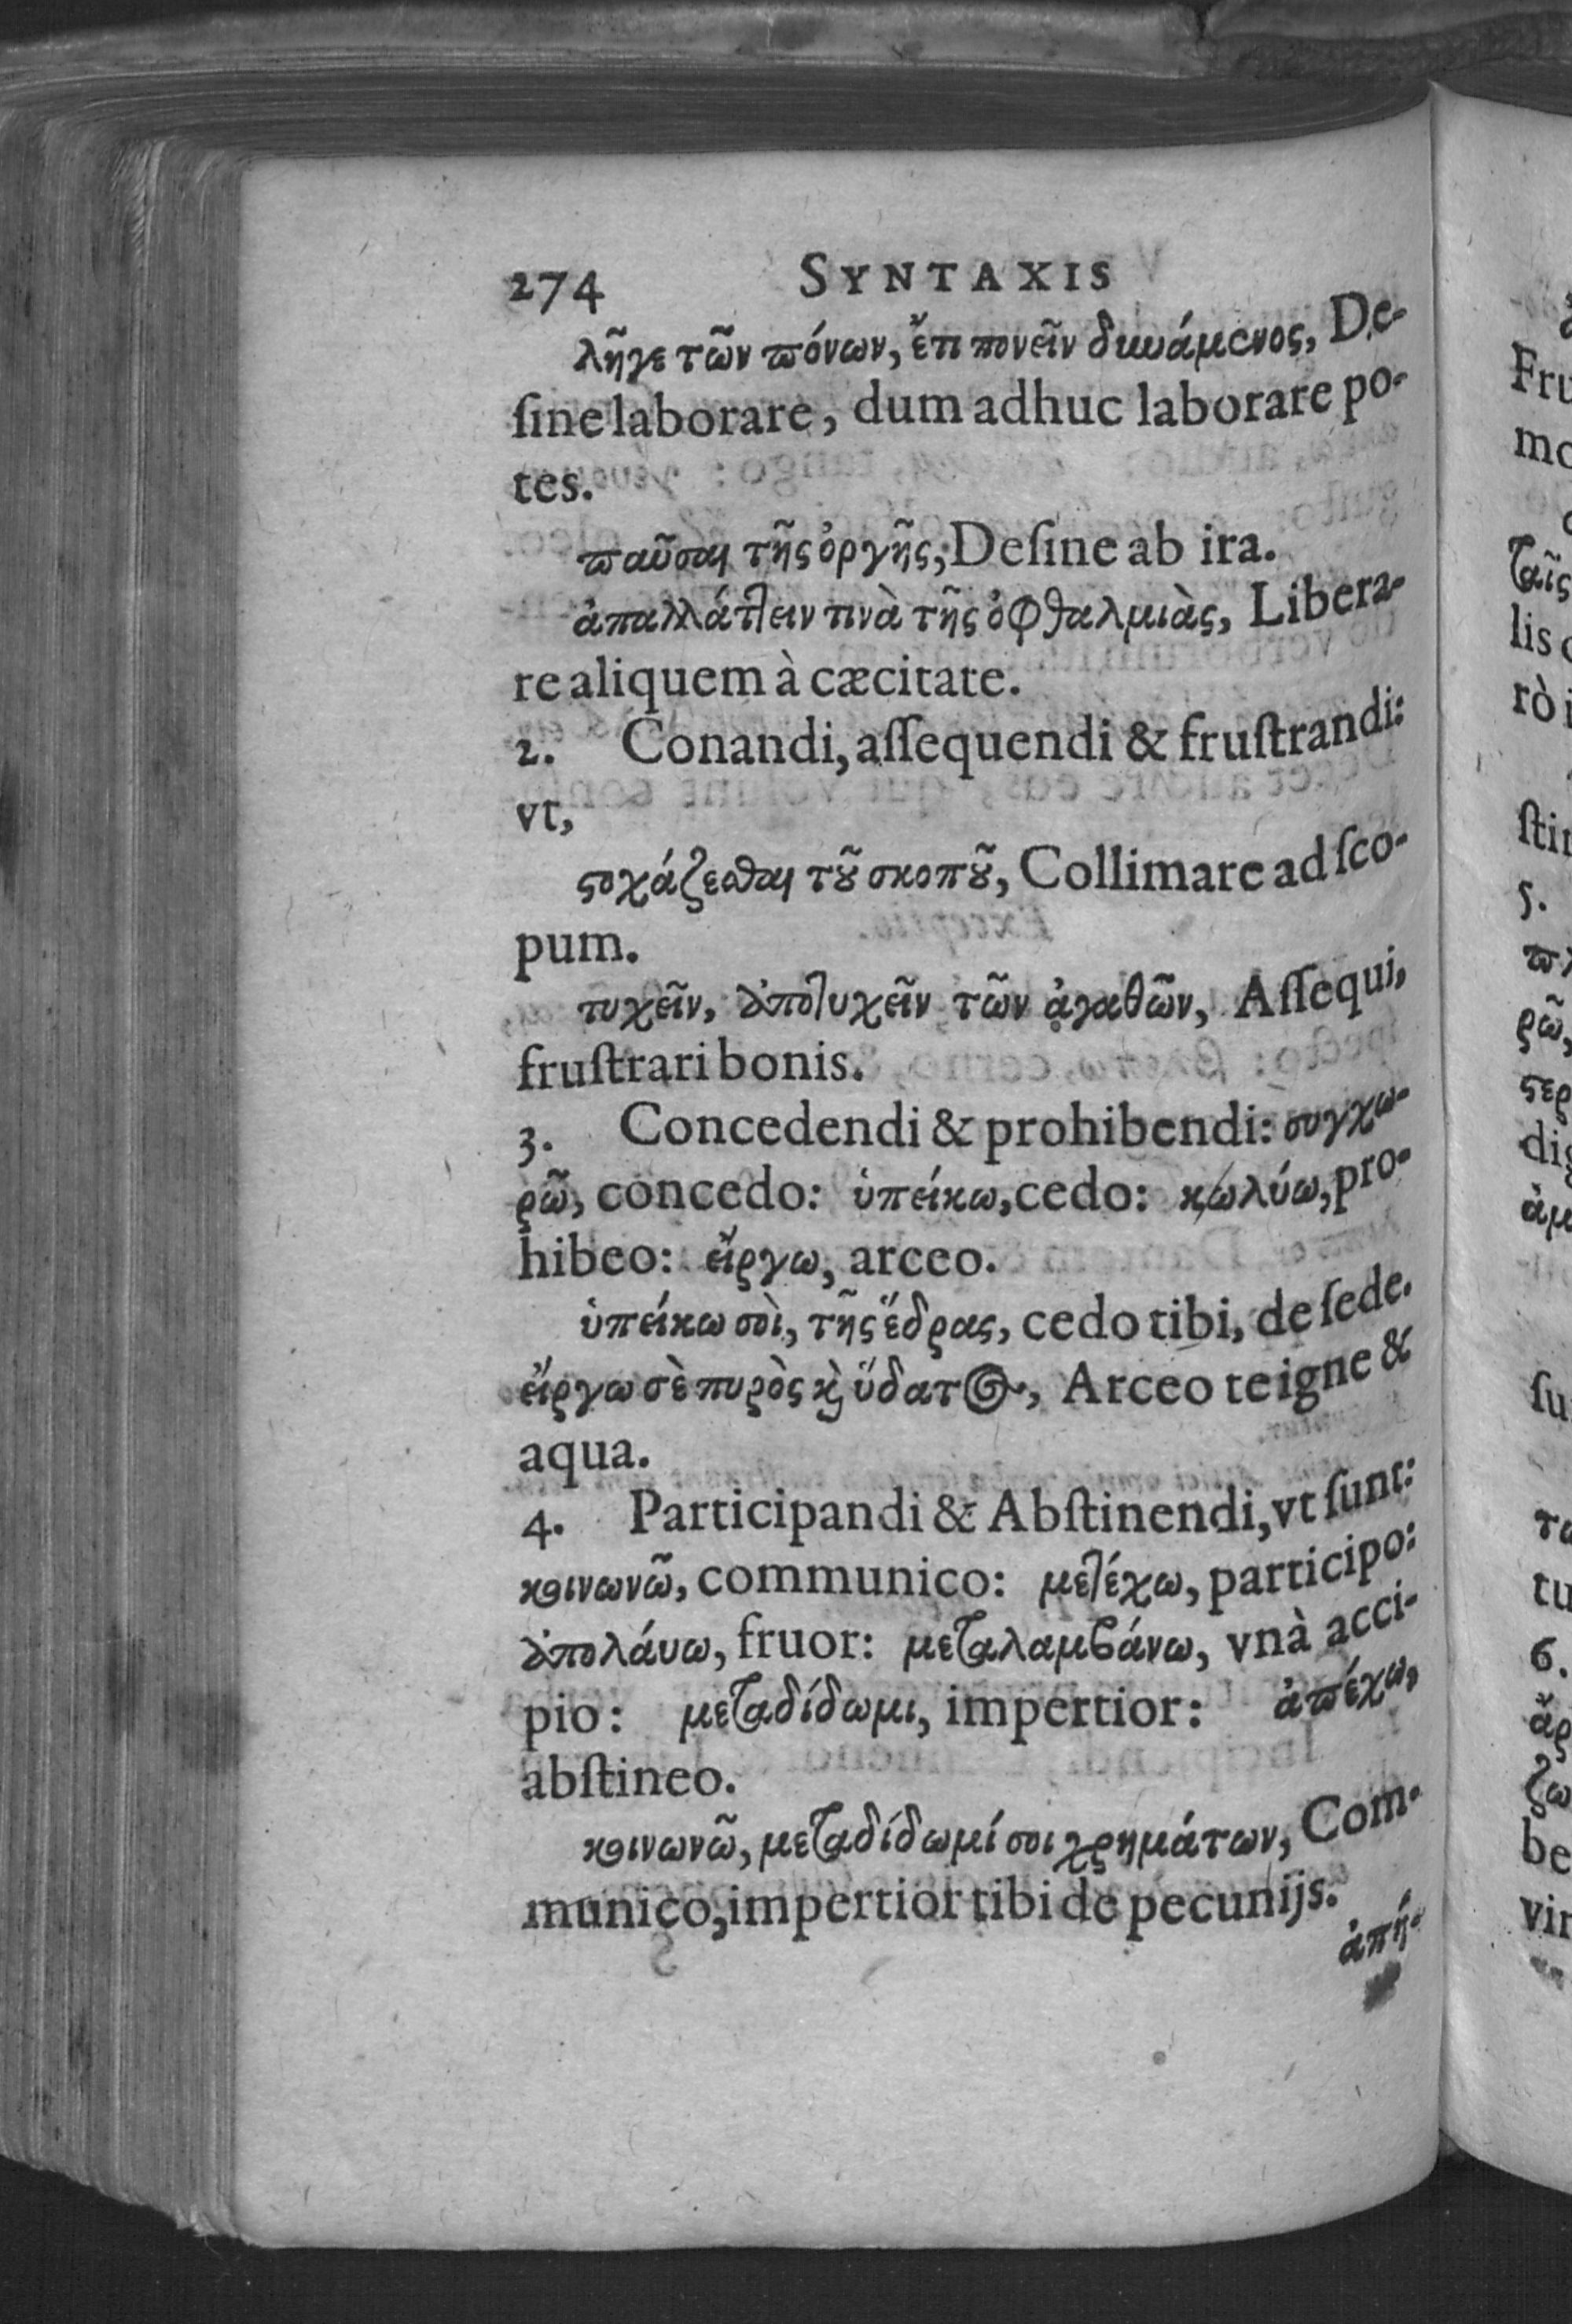 274 SYNTAXIS
λῆγε τῶν πόνων, ἔτι πονεῖν δυνάμενος, De-
ſine laborare, dum adhuc laborare po-
tes.
παῦσαι τῆς ὀργῆς, Deſine ab ira.
ἀπαλλάττειν τινὰ τῆς ὀφθαλμιὰς, Libera-
re aliquem à cæcitate.
2. Conandi, aſſequendi & fruſtrandi:
vt,
ϛοχάζεσθαι τȣ͂ σκοπȣ͂, Collimare ad ſco-
pum.
τυχεῖν, ἀποτυχεῖν τῶν ἀγαθῶν, Aſſequi,
fruſtrari bonis.
3. Concedendi & prohibendi: συγχω-
ρῶ, concedo: ὑπείκω, cedo: κωλύω, pro-
hibeo: εἴργω, arceo.
ὑπείκω σοὶ, τῆς ἕδρας, cedo tibi, de ſede.
εἴργω σὲ πυρὸς ϗ̀ ὕδατος, Arceo te igne &
aqua.
4. Participandi & Abſtinendi, vt ſunt:
κοινωνῶ, communico: μετέχω, participo:
ἀπολάυω, fruor: μεταλαμβάνω, vnà acci-
pio: μεταδίδωμι, impertior: ἀπέχω,
abſtineo.
κοινωνῶ, μεταδίδωμί σοι χρημάτων, Com-
munico, impertior tibi de pecunijs.
ἀπή-
Fru
mo
ταῖς
lis
rò
ſti
5.
ρῶ,
ϛερ
dig
ἀμ
ſu
τα
tu
6.
ἄρ
ζω
be
vir